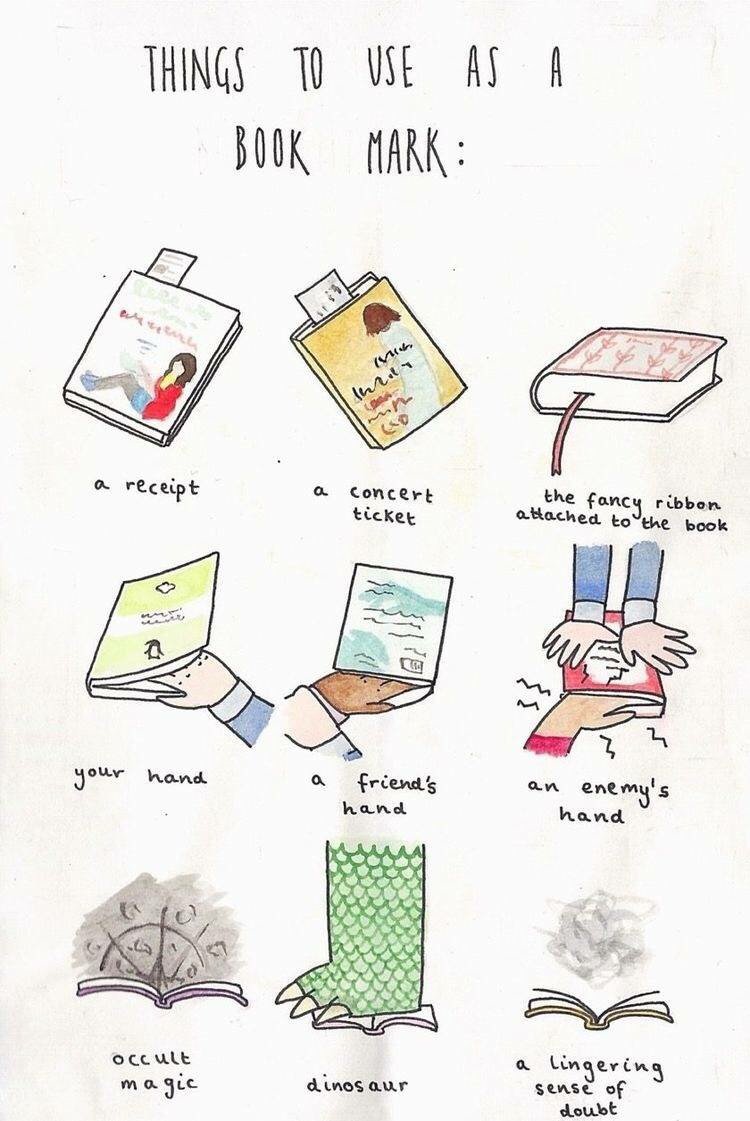 THINGS TO USE AS A
BOOK MARK:
a receipt
a concert
ticket
the fancy ribbon
attached to the book
your hand
a friend's
hand
an enemy's
hand
occult
magic
dinosaur
a lingering
sense of
doubt